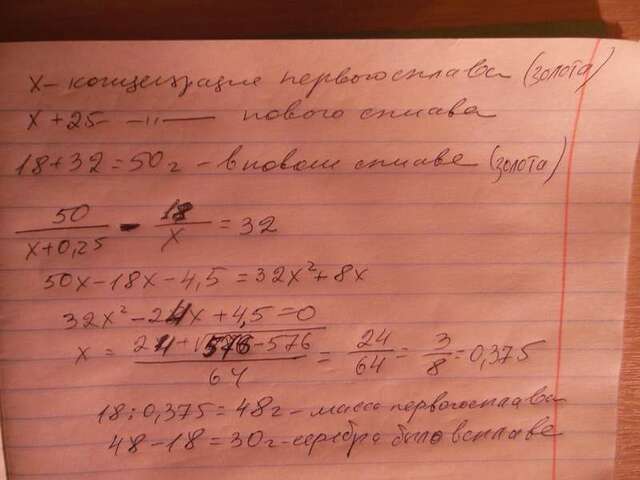 x – концентрация первого сплава (золота)
x + 25 —"— нового сплава
18 + 32 = 50 г – в новом сплаве (золота)
50/(x+0,25) - 18/x = 32
50x - 18x - 4,5 = 32x² + 8x
32x² - 24x + 4,5 = 0
x = (24 + √576 - 576)/64 = 24/64 = 3/8 = 0,375
18 : 0,375 = 48 г – масса первого сплава
48 - 18 = 30 г – серебра было в сплаве